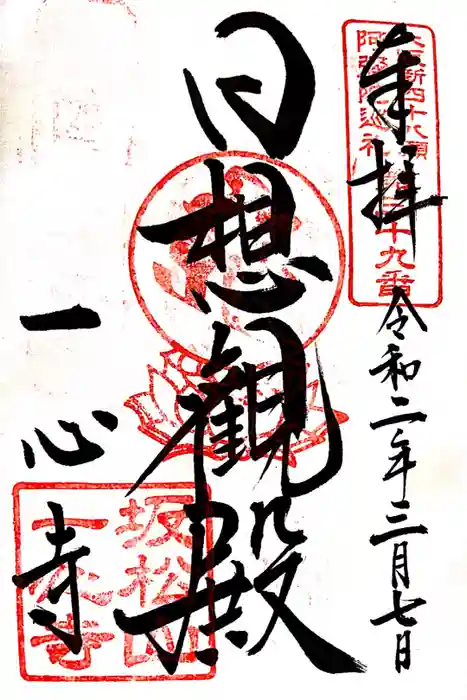 奉拝
令和二年三月七日
大阪新四十八願
阿弥陀巡礼
第三十九番
日想觀殿
一心寺
坂松山
一心寺